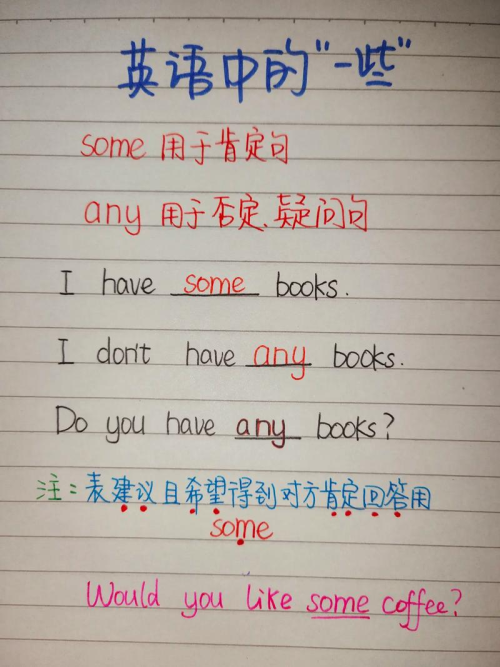 英语中的"一些"
some 用于肯定句
any 用于否定、疑问句
I have some books.
I don't have any books.
Do you have any books?
注：表建议且希望得到对方肯定回答用
some
Would you like some coffee?